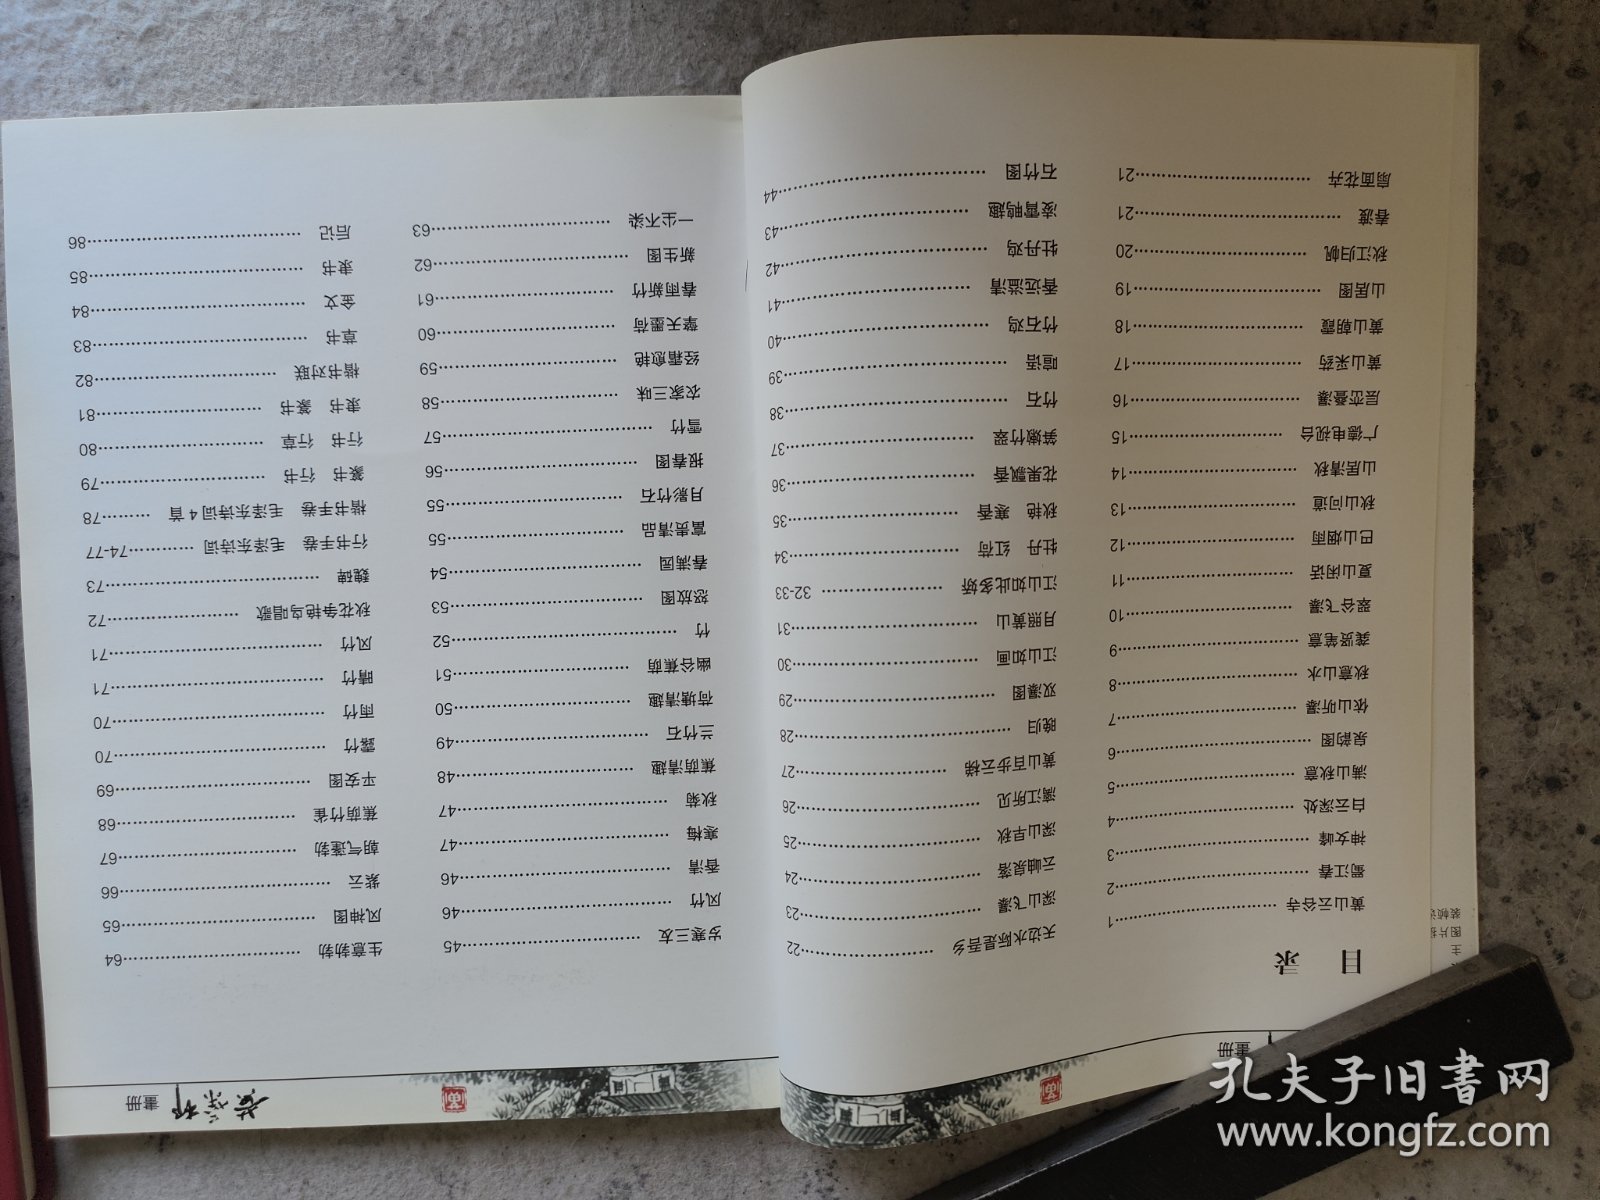 畫册
目录
黄山云谷寺 1
蜀江春 2
神女峰 3
白云深处 4
满山秋意 5
泉韵图 6
依山听瀑 7
秋意山水 8
龚贤笔意 9
翠谷飞瀑 10
夏山闲话 11
巴山烟雨 12
秋山问道 13
山居清秋 14
广德电视台 15
层峦叠瀑 16
黄山采药 17
黄山朝霞 18
山居图 19
秋江归帆 20
春渡 21
扇面花卉 21
天边水际是吾乡 22
深山飞瀑 23
云岫泉落 24
深山早秋 25
漓江所见 26
黄山百步云梯 27
晚归 28
双瀑图 29
江山如画 30
月照黄山 31
江山如此多娇 32-33
牡丹 红荷 34
秋艳 寒香 35
花果飘香 36
笋嫩竹翠 37
竹石 38
喧语 39
竹石鸡 40
香远溢清 41
牡丹鸡 42
凌霄鸭趣 43
石竹图 44
畫册
岁寒三友 45
风竹 46
香清 46
寒梅 47
秋菊 47
蕉荫清趣 48
兰竹石 49
荷塘清趣 50
幽谷蕉荫 51
竹 52
怒放图 53
春满园 54
富贵清品 55
月影竹石 55
报春图 56
雪竹 57
农家三味 58
经霜愈艳 59
擎天墨荷 60
春雨新竹 61
新生图 62
一尘不染 63
生意勃勃 64
风神图 65
紫云 66
朝气蓬勃 67
蕉荫竹雀 68
平安图 69
露竹 70
雨竹 70
晴竹 71
风竹 71
秋花争艳鸟唱歌 72
魏碑 73
行书手卷 毛泽东诗词 74-77
楷书手卷 毛泽东诗词4首 78
篆书 行书 79
行书 行草 80
隶书 篆书 81
楷书对联 82
草书 83
金文 84
隶书 85
后记 86
主
图片
装帧
孔夫子旧書网
www.kongfz.com